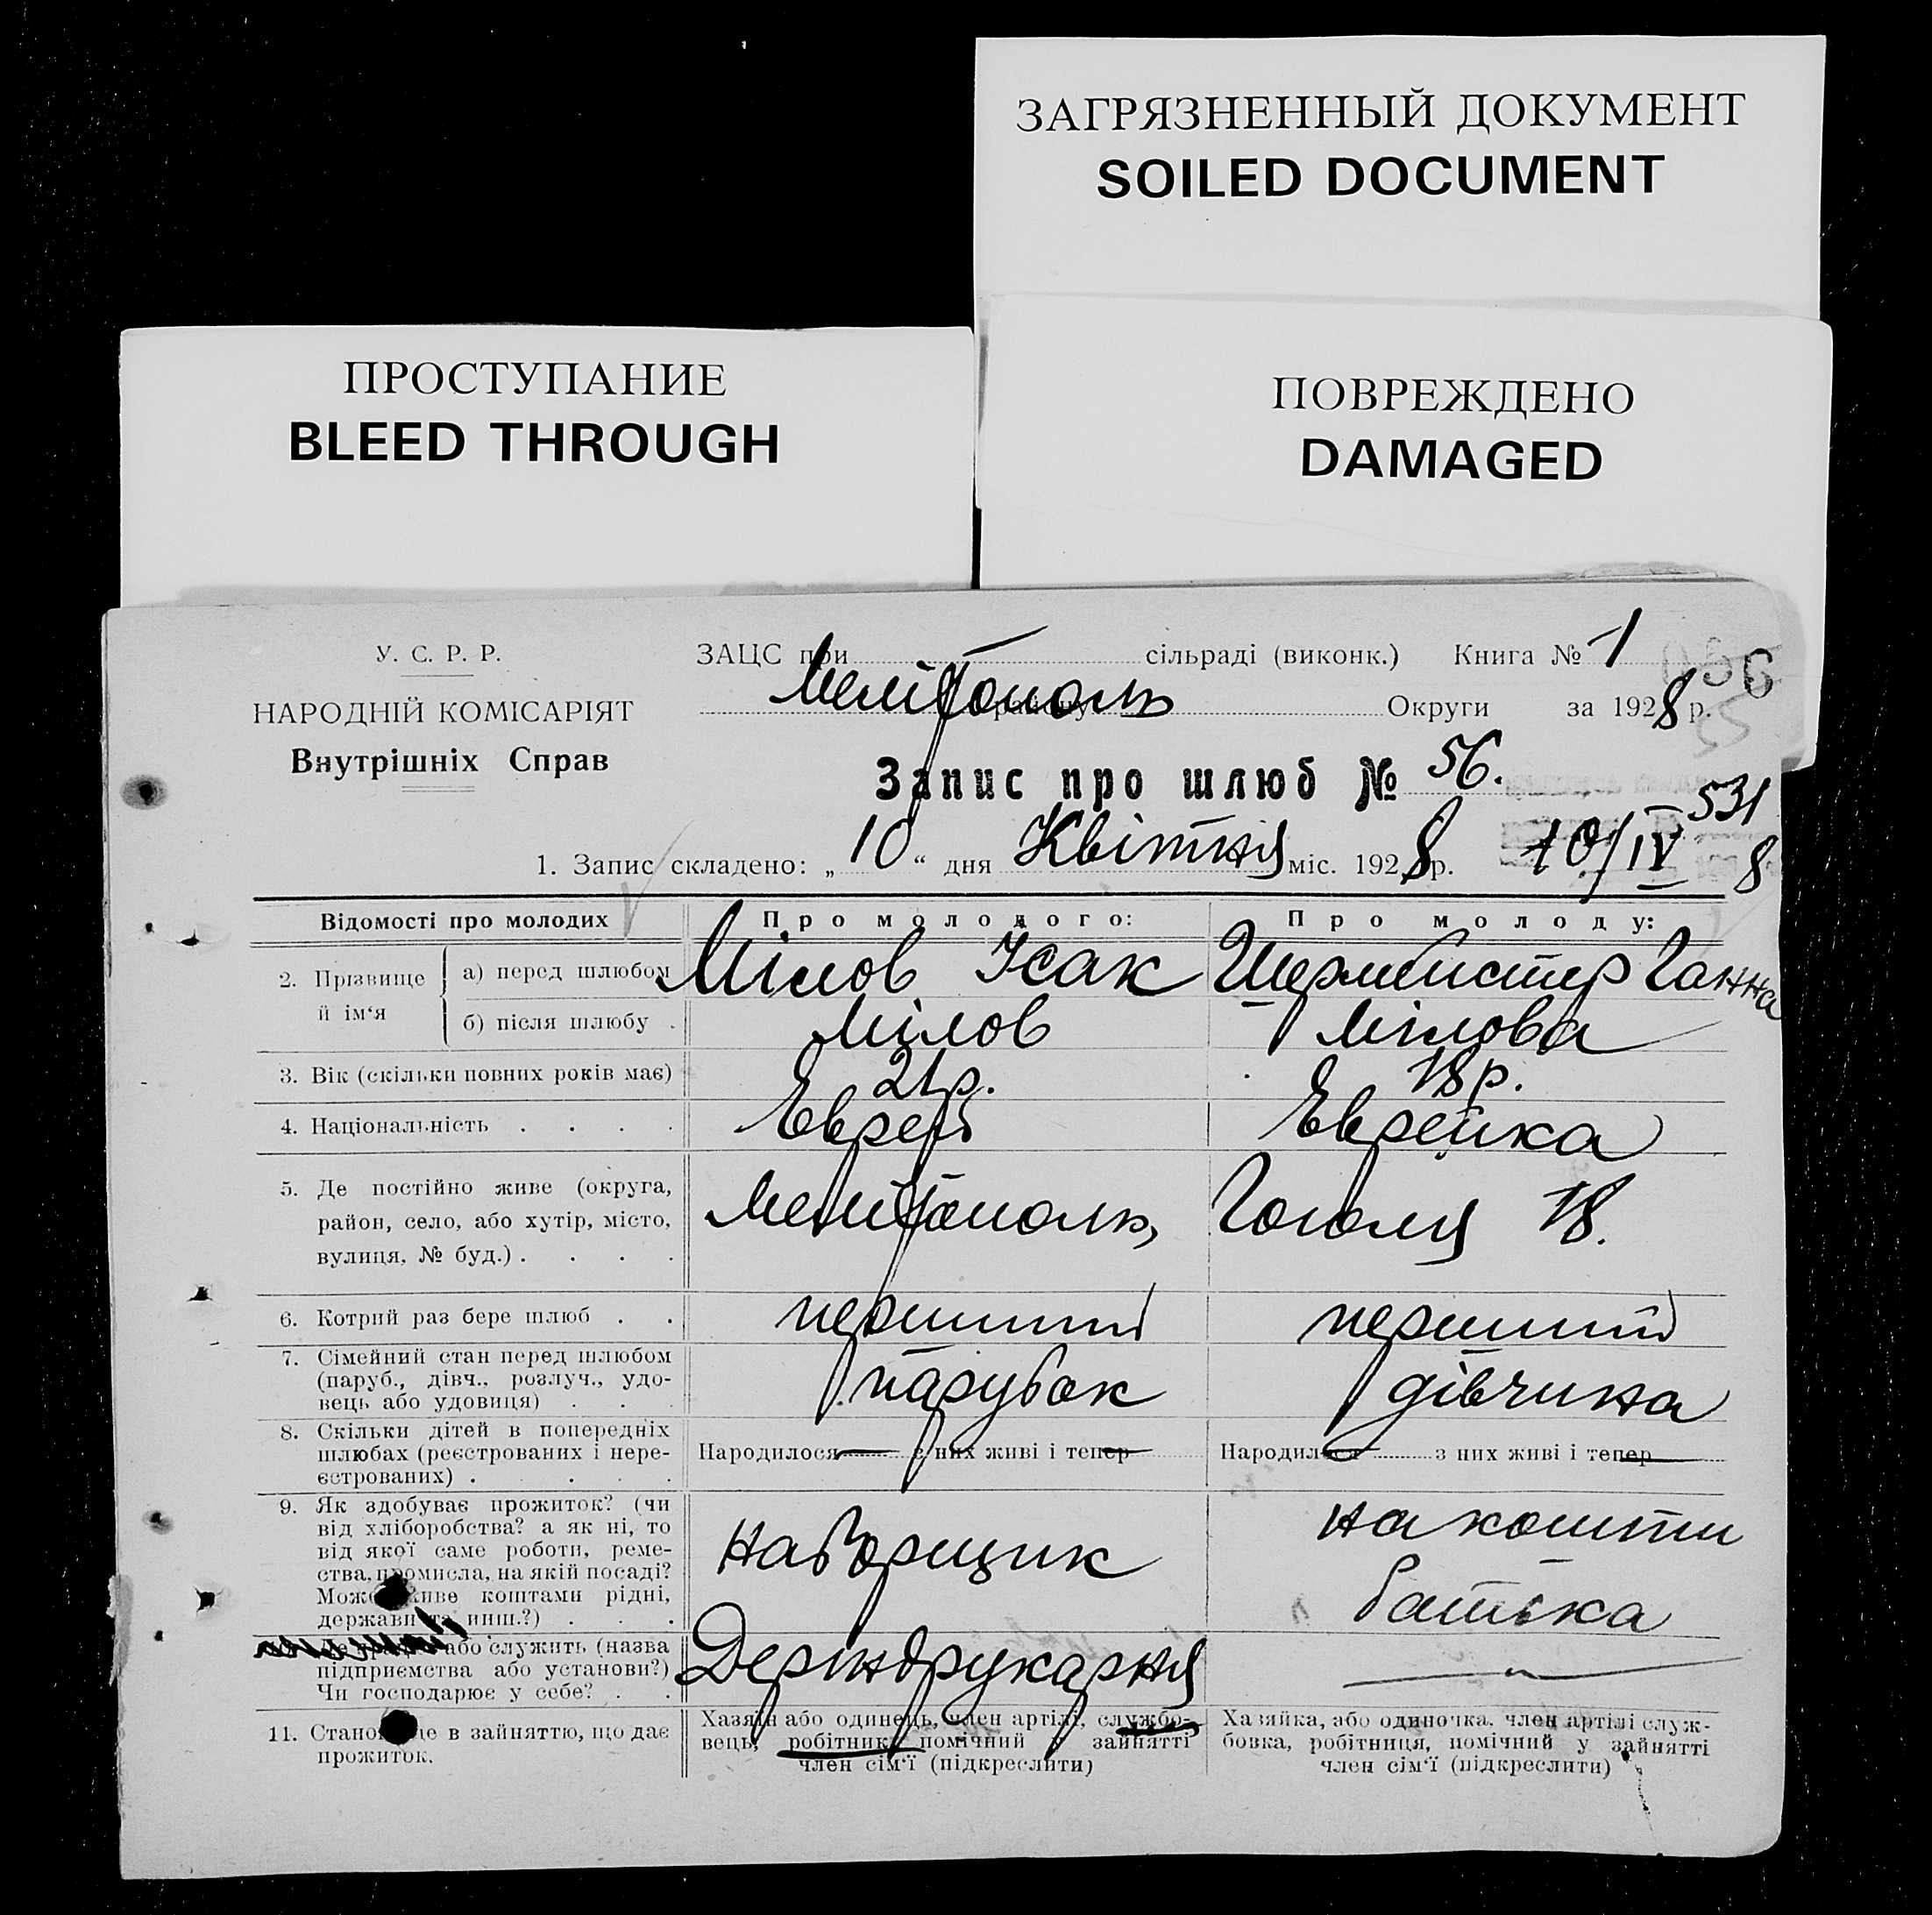 ЗАГРЯЗНЕННЫЙ ДОКУМЕНТ
SOILED DOCUMENT
ПРОСТУПАНИЕ
BLEED THROUGH
ПОВРЕЖДЕНО
DAMAGED
У. С. Р. Р.
НАРОДНІЙ КОМІСАРІЯТ
Внутрішніх Справ
ЗАЦС при сільраді (виконк.) Книга № 1
Мелітополь району Округи за 1928 р.
Запис про шлюб № 56.
531
1. Запис складено: „ 10 “ дня Квітня міс. 1928 р. 10/IV 8
Відомості про молодих Про молодого: Про молоду:
2. Прізвище й ім‘я
а) перед шлюбом Мілов Ісак Шермейстер Ганна
б) після шлюбу . Мілов Мілова
3. Вік (скільки повних років має) 21 р. 18 р.
4. Національність . . . . Еврей Еврейка
5. Де постійно живе (округа,
район, село, або хутір, місто,
вулиця, № буд.) . . . .
Мелітополь, Гоголя 18.
6. Котрий раз бере шлюб . . перший перший
7. Сімейний стан перед шлюбом
(паруб., дівч., розлуч., удо-
вець або удовиця) . . .
парубок дівчина
8. Скільки дітей в попередніх
шлюбах (реєстрованих і нере-
єстрованих) . . . .
Народилося з них живі і тепер Народилося з них живі і тепер
9. Як здобуває прожиток? (чи
від хліборобства? а як ні, то
від якої саме роботи, реме-
ства, промисла, на якій посаді?
Може живе коштами рідні,
держави та инш.?) . . .
наборщик
на кошти
батька
або служить (назва
підприємства або установи?)
Чи господарює у себе? . .
Держдрукарня
11. Становище в зайняттю, що дає
прожиток.
Хазяїн або одинець, член артілі, службо-
вець, робітник, помічний у зайнятті
член сім‘ї (підкреслити)
Хазяйка, або одиночка, член артілі служ-
бовка, робітниця, помічний у зайнятті
член сім‘ї (підкреслити)